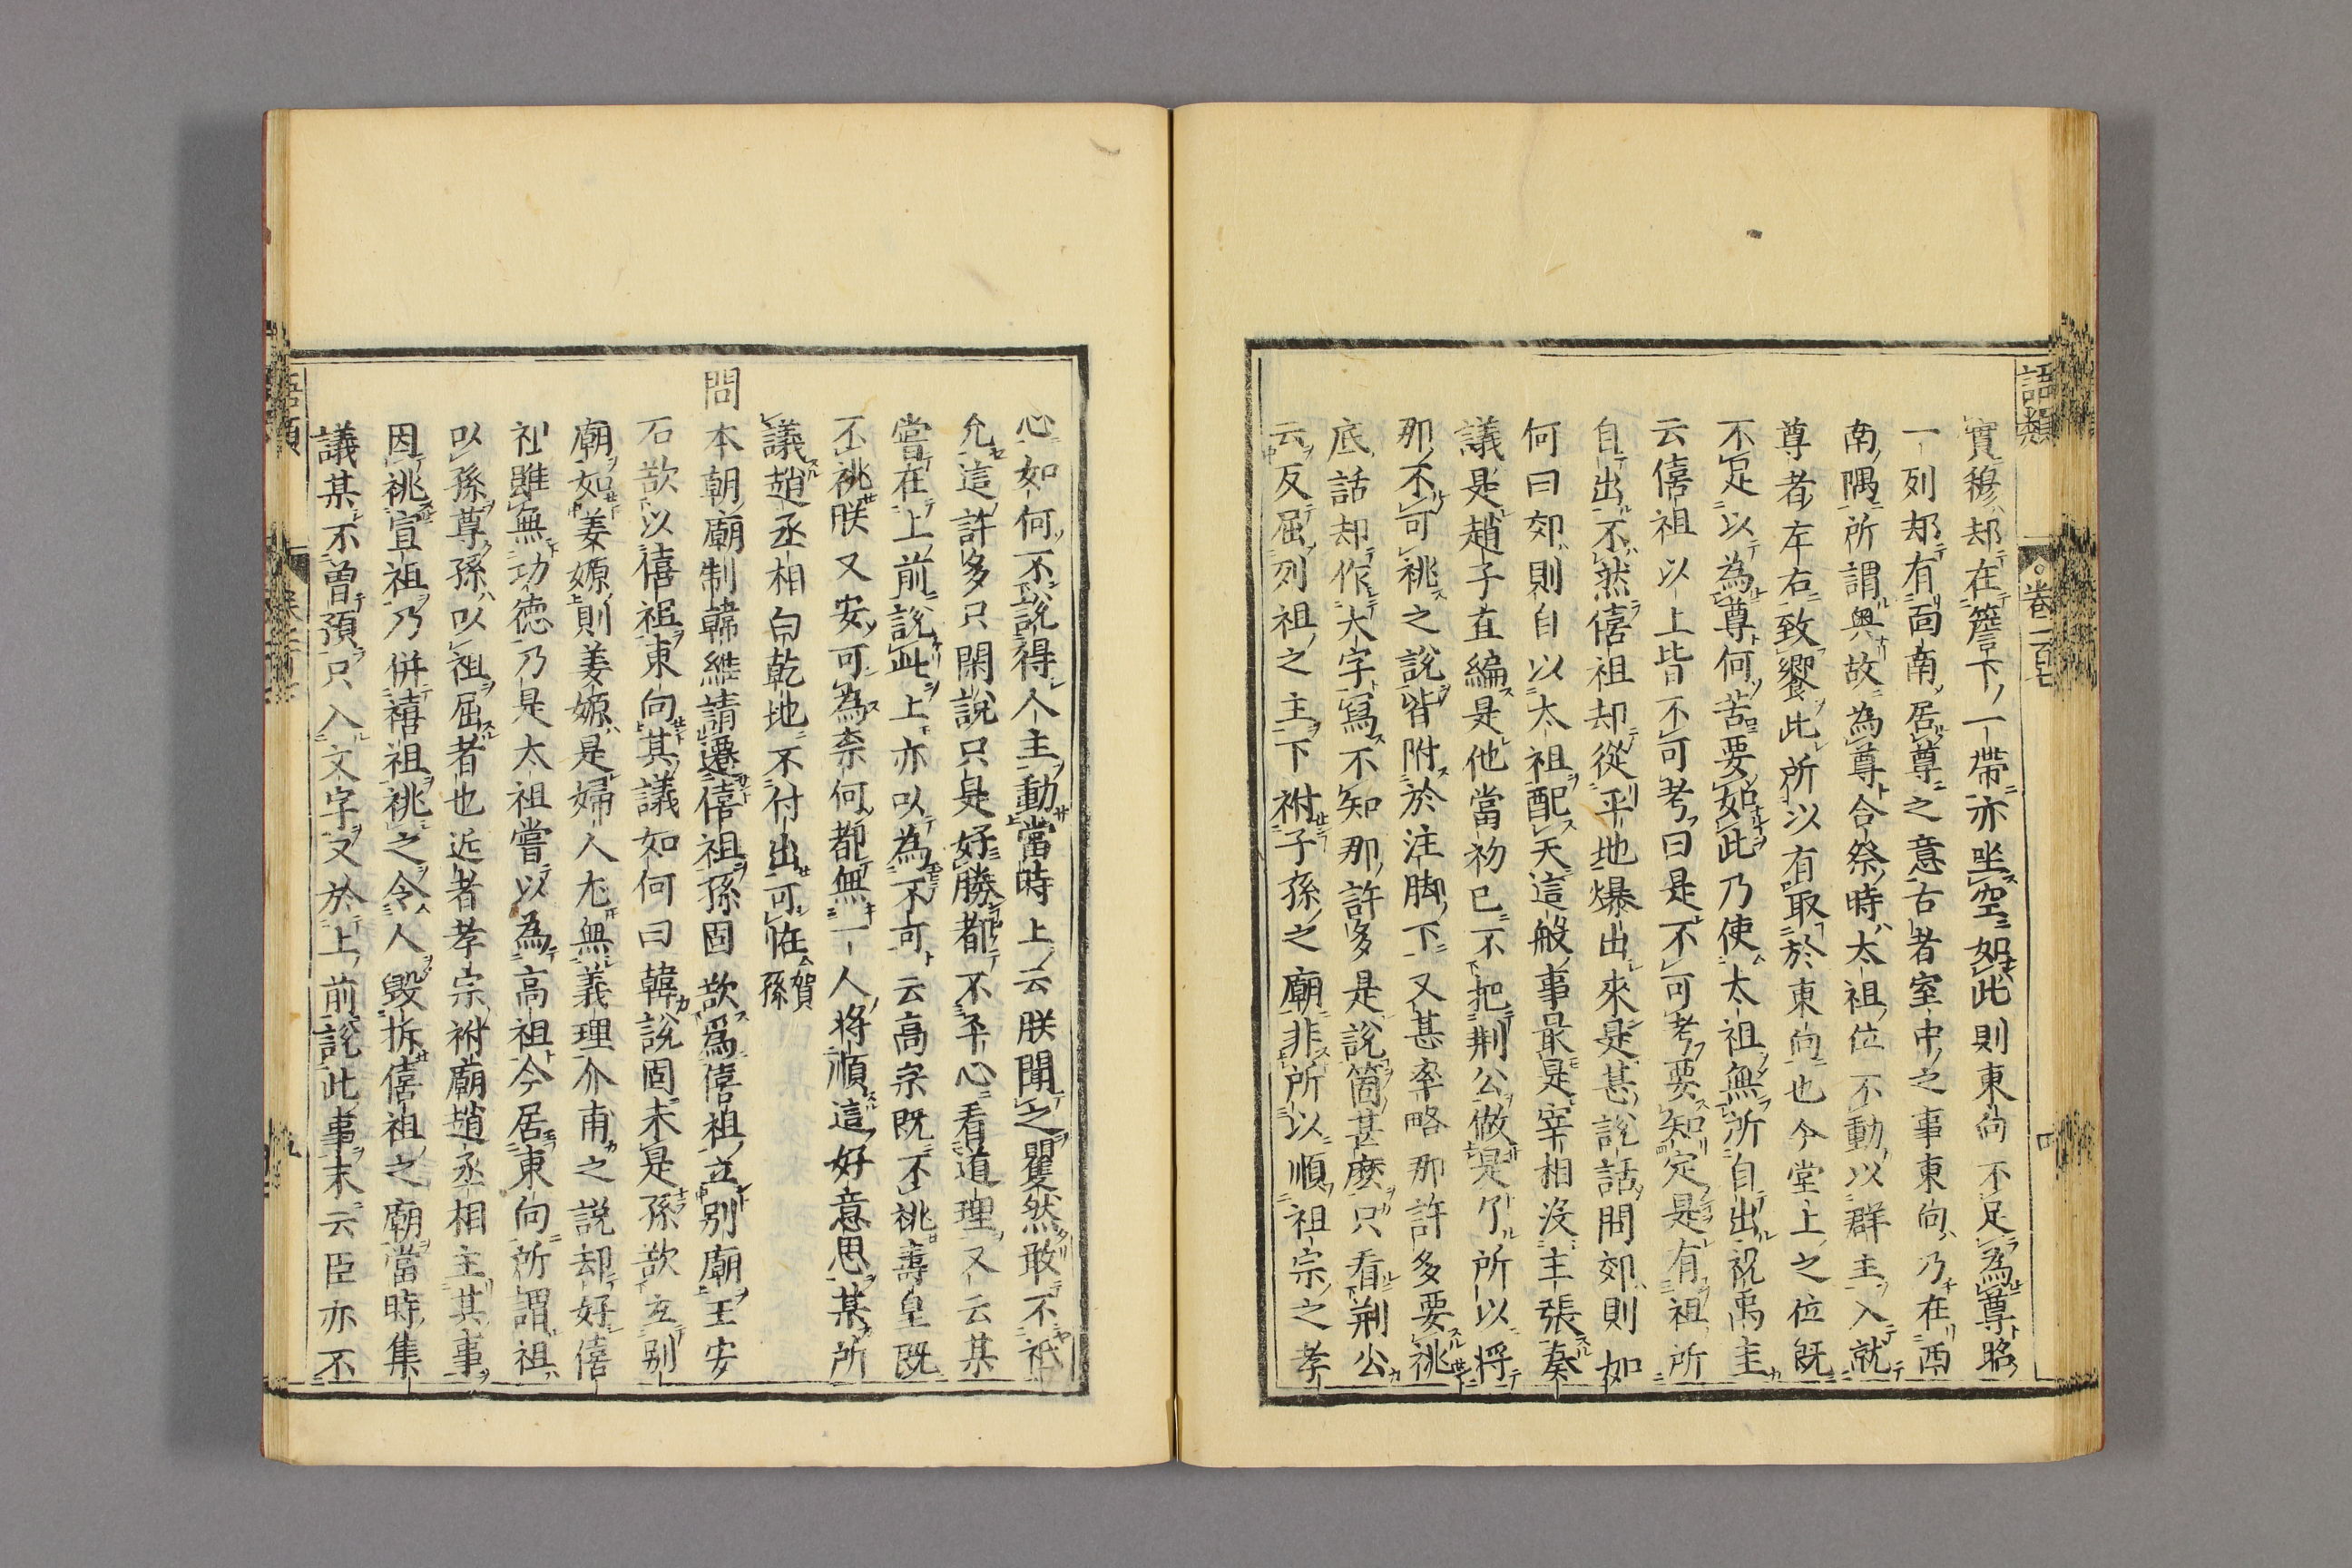 語類
卷一百七
四
實穆却在簷下一帶亦坐空如此則東向不足為尊昭
一列却有面南居尊之意古者室中之事東向乃在西
南隅所謂奧故為尊合祭時太祖位不動以群主入就
尊者左右致饗此所以有取於東向也今堂上之位既
不足以為尊何苦要如此乃使太祖無所自出祝禹圭
云僖祖以上皆不可考曰是不可考要知定是有祖所
自出不然僖祖却從平地爆出來是甚說話問郊則如
何曰郊則自以太祖配天這般事最是宰相沒主張奏
議是趙子直編是他當初已不把荊公做是了所以將
那不可祧之說皆附於注脚下又甚率略那許多要祧
底話却作大字寫不知那許多是說箇甚麼只看荊公
云反屈列祖之主下祔子孫之廟非所以順祖宗之孝
心如何不說得人主動當時上云朕聞之矍然敢不祗
允這許多只閑說只是好勝都不平心看道理又云某
嘗在上前說此上亦以為不可云高宗既不祧壽皇既
不祧朕又安可為柰何都無一人將順這好意思某所
議趙丞相白乾地不付出可怪賀孫
問
本朝廟制韓維請遷僖祖孫固欲爲僖祖立別廟王安
石欲以僖祖東向其議如何曰韓說固未是孫欲立別
廟如姜嫄則姜嫄是婦人尤無義理介甫之說却好僖
祖雖無功德乃是太祖嘗以為高祖今居東向所謂祖
以孫尊孫以祖屈者也近者孝宗祔廟趙丞相主其事
因祧宣祖乃併禧祖祧之令人毀拆僖祖之廟當時集
議某不曾預只入文字又於上前說此事末云臣亦不
語類